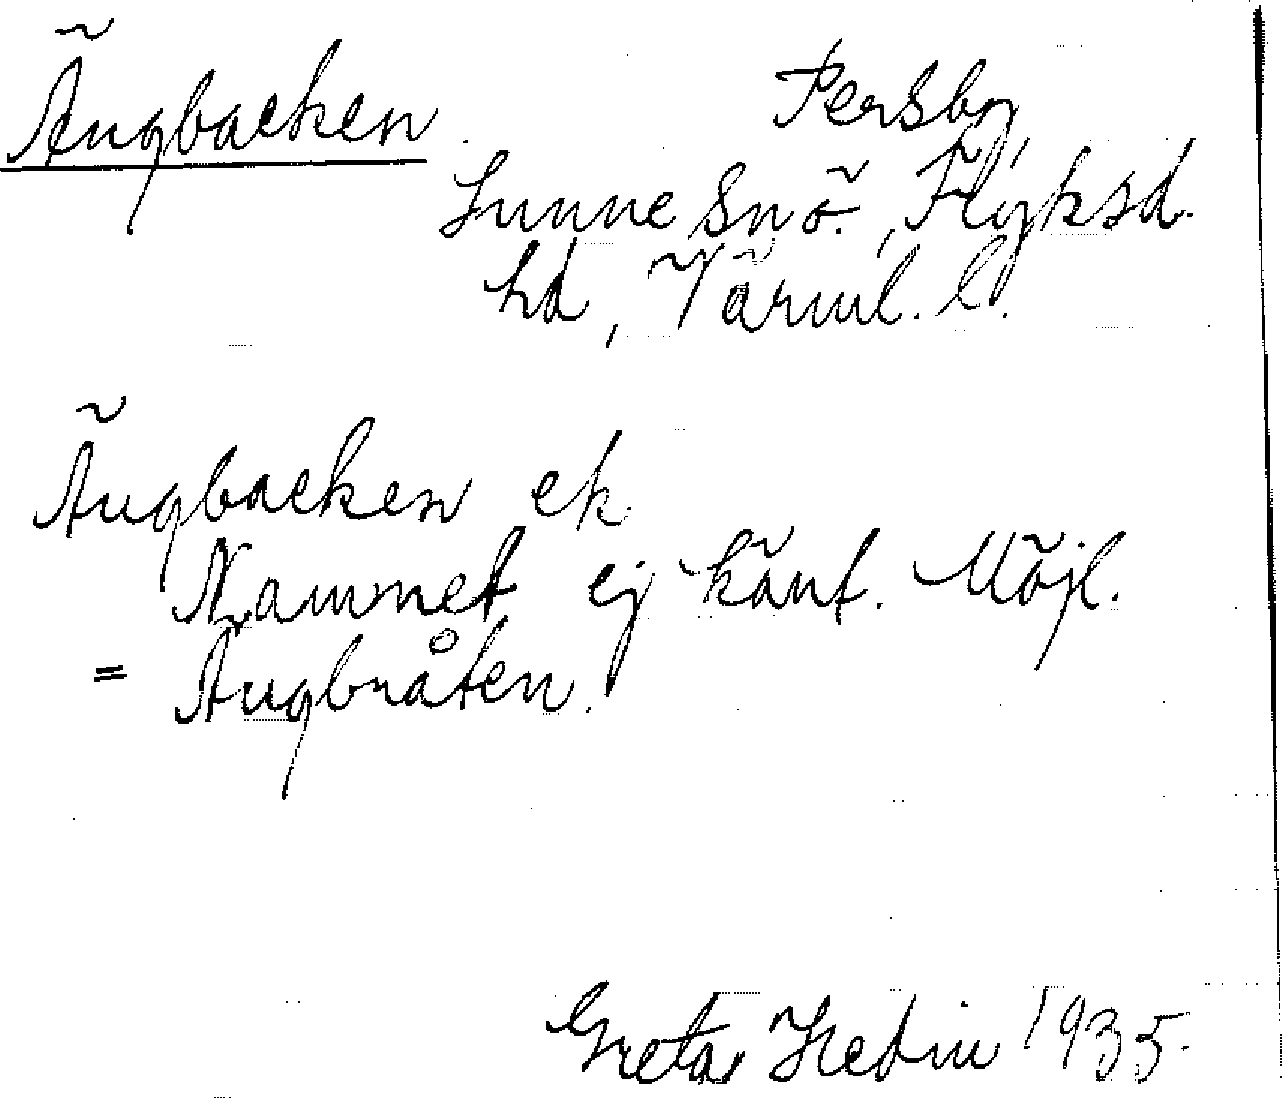 Ängbacken
Persby,
Sunne snö., Fryksd.
hd, Värml. l.
Ängbacken ek.
Namnet ej känt. Möjl.
= Ängbråten.
Greta Hedin 1935.